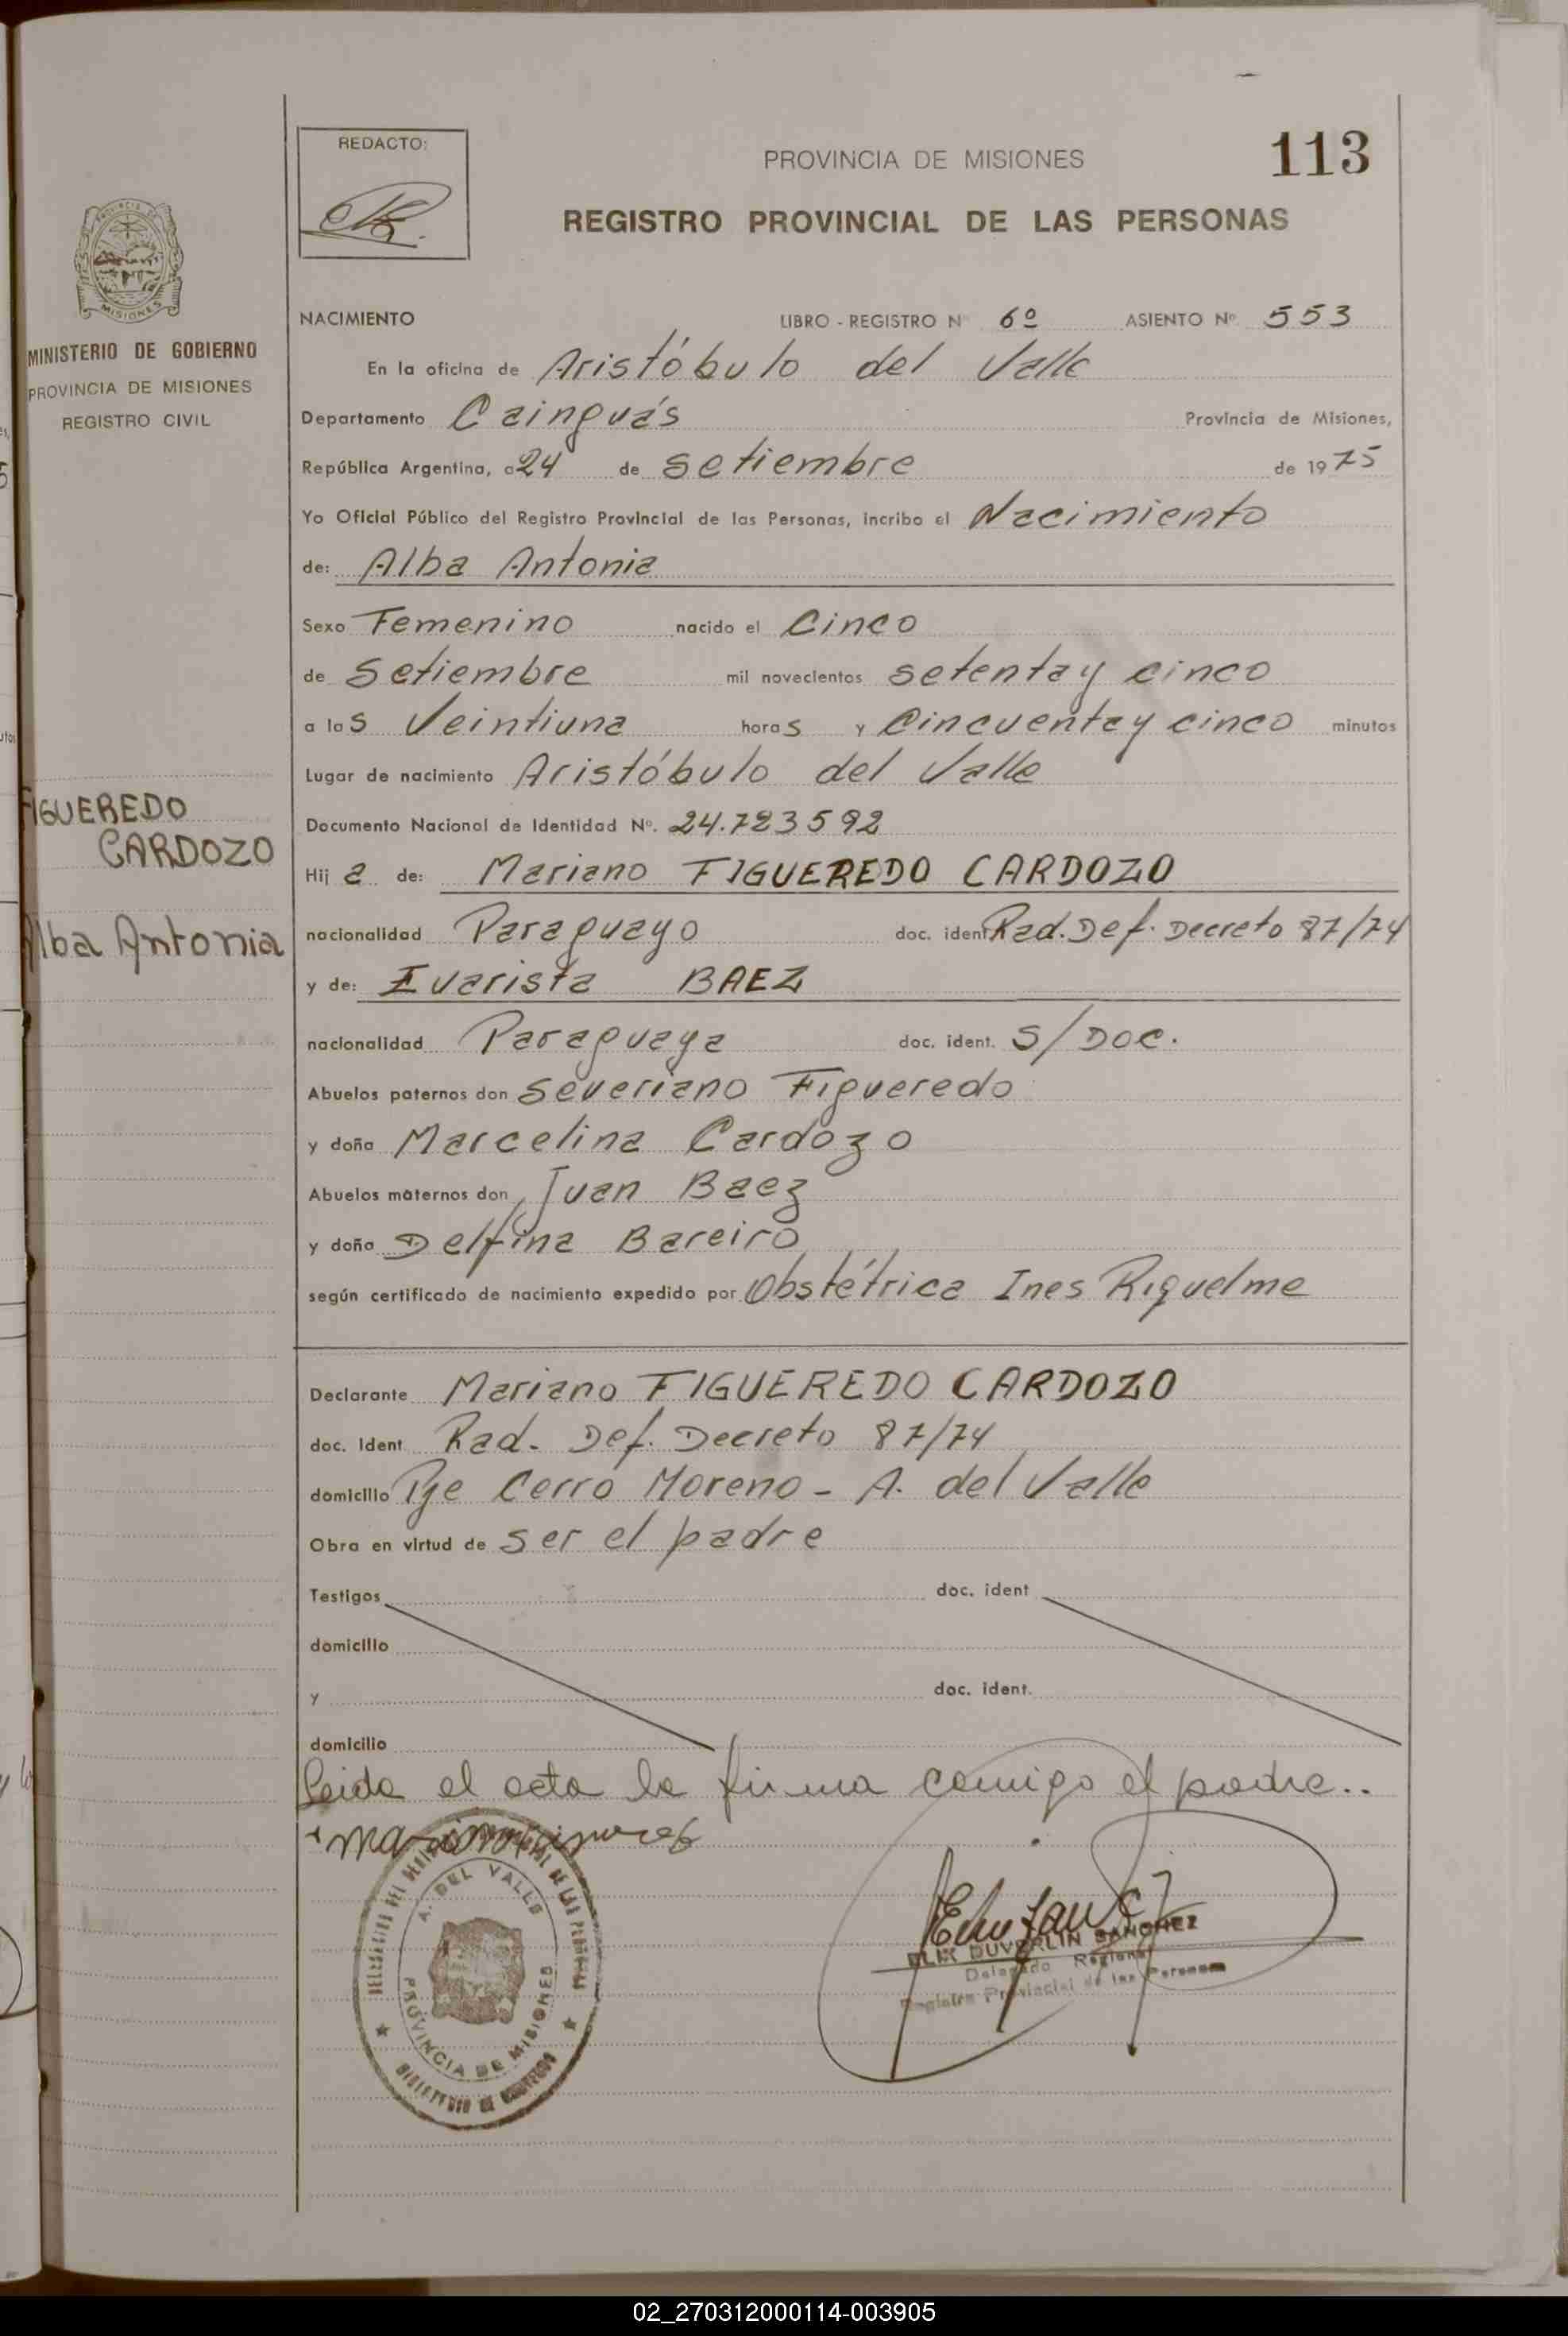 113
REDACTO:
PROVINCIA DE MISIONES
REGISTRO PROVINCIAL DE LAS PERSONAS
MISIONES
MINISTERIO DE GOBIERNO
PROVINCIA DE MISIONES
REGISTRO CIVIL
FIGUEREDO
CARDOZO
Alba Antonia
NACIMIENTO LIBRO - REGISTRO N° 6º ASIENTO Nº 553
En la oficina de Aristóbulo del Valle
Departamento Cainguás Provincia de Misiones,
República Argentina, a 24 de Setiembre de 1975
Yo Oficial Público del Registro Provincial de las Personas, incribo el Nacimiento
de: Alba Antonia
Sexo Femenino nacido el Cinco
de Setiembre mil novecientos setenta y cinco
a las Veintiuna horas y Cincuenta y cinco minutos
Lugar de nacimiento Aristóbulo del Valle
Documento Nacional de Identidad Nº. 24.723592
Hija de: Mariano FIGUEREDO CARDOZO
nacionalidad Paraguayo doc. ident Rad. Def. Decreto 87/74
y de: Evarista BAEZ
nacionalidad Paraguaya doc. ident. S/DOC.
Abuelos paternos don Severiano Figueredo
y doña Marcelina Cardozo
Abuelos maternos don Juan Baez
y doña Delfina Bareiro
según certificado de nacimiento expedido por Obstétrica Ines Riquelme
Declarante Mariano FIGUEREDO CARDOZO
doc. Ident Rad. Def. Decreto 87/74
domicilio Pje Cerro Moreno - A. del Valle
Obra en virtud de ser el padre
Testigos doc. ident
domicilio
y doc. ident.
domicilio
Leida el acta la firma comigo el padre..
A. DEL VALLE
PROVINCIA DE MISIONES
DUVERLIN SANCHEZ
Delegado Regional
Registro Provincial de las Personas
02_270312000114-003905